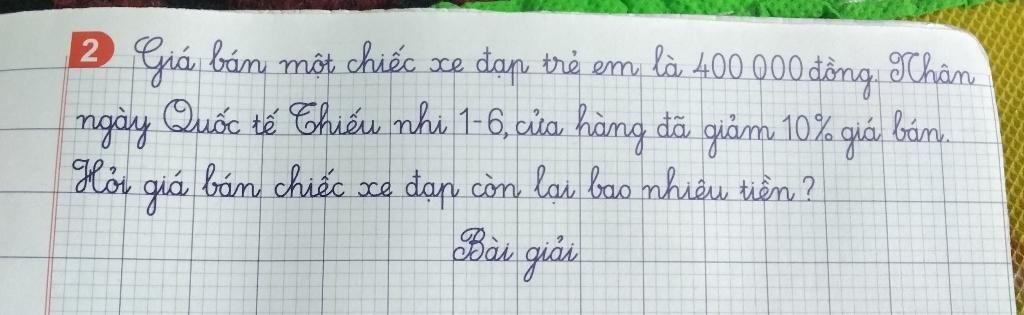 2 Giá bán một chiếc xe đạp trẻ em là 400 000 đồng. Nhân
ngày Quốc tế Thiếu nhi 1-6, cửa hàng đã giảm 10% giá bán.
Hỏi giá bán chiếc xe đạp còn lại bao nhiêu tiền?
Bài giải